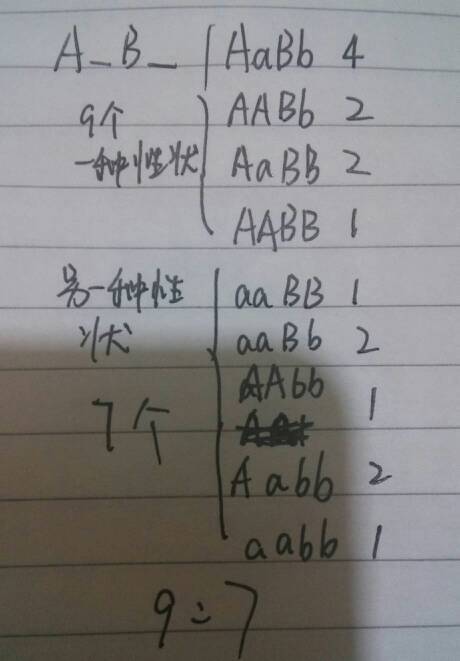 A_B_ AaBb 4
9个 AABb 2
一种性状 AaBB 2
AABB 1
另一种性 aaBB 1
状 aaBb 2
7个 AAbb 1
Aabb 2
aabb 1
9:7